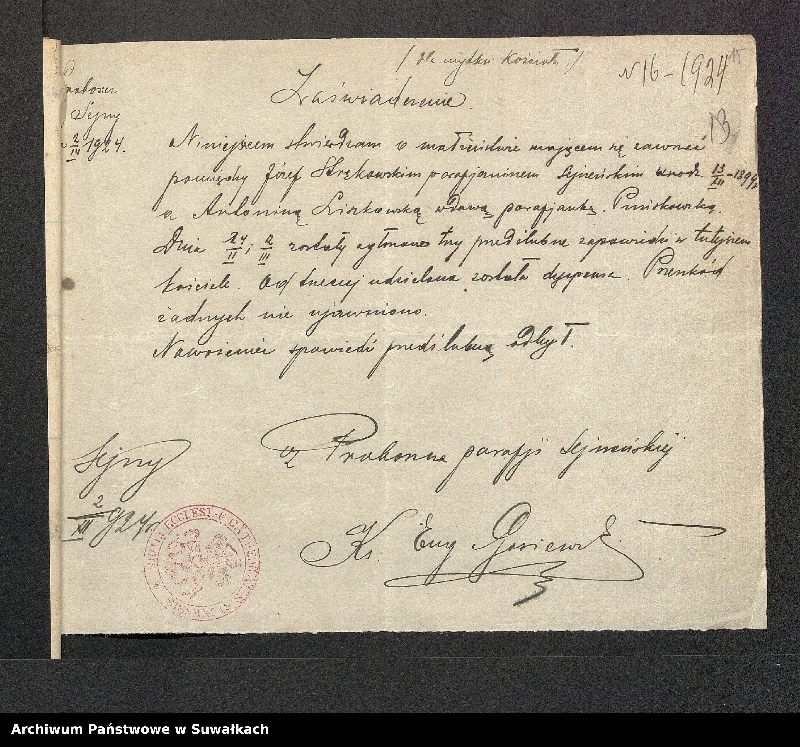 (dla użytku kościoła)
N 16 – 1924
13
Sejny
2/III 1924.
Zaświadczenie.
Niniejszem stwierdzam o małżeństwie mającem się zawrzeć
pomiędzy Józef Strękowskim parafjaninem Sejneńskim urodz. 13/III
a Antoniną Liszkowską wdową parafjanką
Dnia 24/II i 2/III zostały ogłoszone trzy przedślubne zapowiedzi w tutejszem
kościele. Od trzeciej udzielona została dyspensa. Przeszkód
żadnych nie ujawniono.
Nawożeniec spowiedź przedślubną odbył.
Sejny
2/III 924 r.
z Proboszcza parafji Sejneńskiej
Ks. Eug
Archiwum Państwowe w Suwałkach